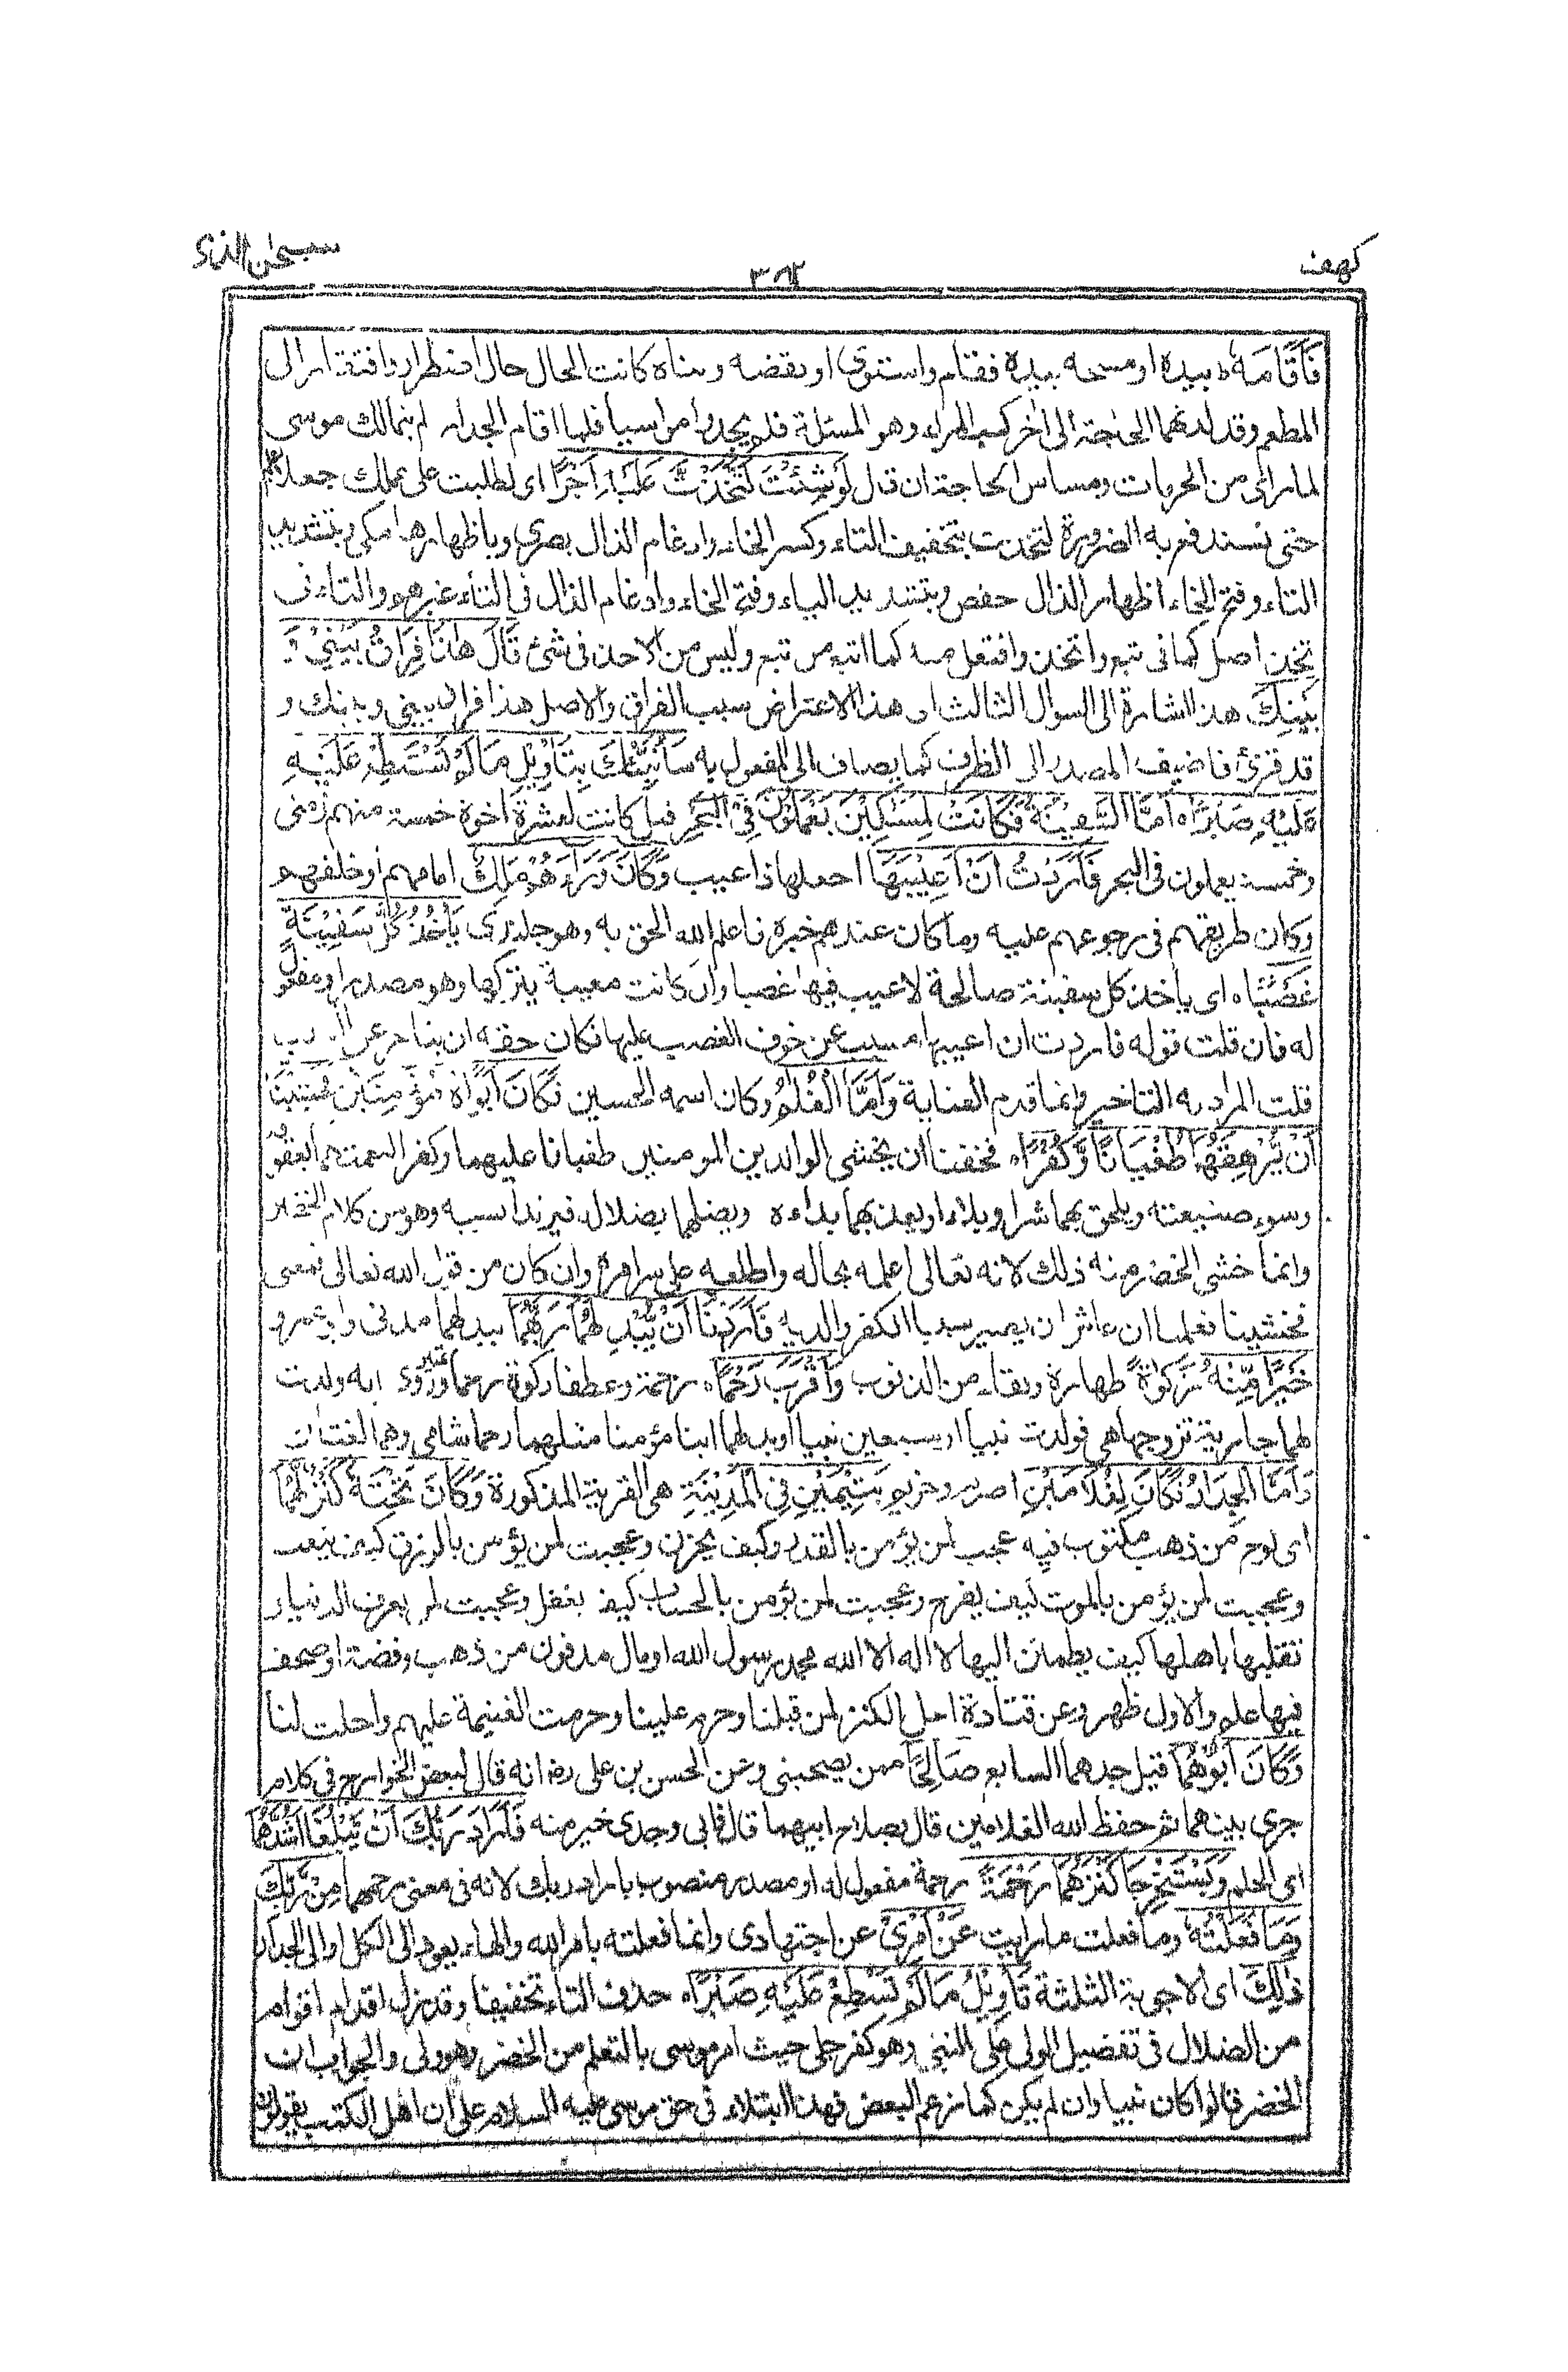 كهف
٣٨٢
سبحٰن الذى
فَاَقَامَهٗ بيده او مسحه بيده فقام واستوى او نقضه وبناه كانت الحال حال اضطرار وافتقار الى
المطعم وقد لزتهما الحاجة الى اٰخر كسب المرء وهو المسئلة فلم يجدوا مواسيا فلما اقام الجدار لم يتمالك موسى
لما راى من الحرمات ومساس الحاجة ان قال لَوْ شِئْتَ لَتَّخَذْتَ عَلَيْهِ اَجْرًا اى لطلبت على عملك جعلا
حتى نستدفع به الضرورة لتخذت بتخفيف التاء وكسر الخاء وادغام الذال بصرى وباظهارها مكى وبتشديد
التاء وفتح الخاء اظهار الذال حفص وبتشديد التاء وفتح الخاء وادغام الذال فى التاء غيرهم والتاء فى
تخذ اصل كما فى تبع واتخذ وافتعل منه كما اتبع من تبع وليس من الاخذ فى شئ قَالَ هٰذَا فِرَاقُ بَيْنِيْ وَ
بَيْنِكَ هذا اشارة الى السوال الثالث اى هذا الاعتراض سبب الفراق والاصل هذا فراق بينى وبينك و
قد قرئ فاضيف المصدر الى الظرف كما يضاف الى المفعول به سَاُنَبِّئُكَ بِتَاْوِيْلِ مَا لَمْ تَسْتَطِعْ عَلَيْهِ
عَلَيْهِ صَبْرًا ه اَمَّا السَّفِيْنَةُ فَكَانَتْ لِمَسٰكِيْنَ يَعْمَلُوْنَ فِي الْبَحْرِ قيل كانت لعشرة اخوة خمسة منهم زمنى
وخمسة يعملون فى البحر فَاَرَدْتُّ اَنْ اَعِيْبَهَا اجعلها ذا عيب وَكَانَ وَرَآءَهُمْ مَلِكٌ امامهم او خلفهم
وكان طريقهم فى رجوعهم عليه وما كان عندهم خبره فاعلم الله الحق به وهو جلندى يَاْخُذُ كُلَّ سَفِيْنَةٍ
غَصْبًا ه اى ياخذ كل سفينة صالحة لا عيب فيها غصبا وان كانت معيبة يتركها وهو مصدر او مفعول
له فان قلت قوله فاردت ان اعيبها مسبب عن خوف الغصب عليها فكان حقه ان يتاخر عن السبب
قلت المراد به التاخير وانما قدم للعناية وَاَمَّا الْغُلٰمُ وكان اسمه الحسين فَكَانَ اَبَوٰهُ مُؤْمِنَيْنِ فَخَشِيْنَا
اَنْ يُّرْهِقَهُمَا طُغْيَانًا وَّكُفْرًا ه فخفنا ان يغشى الوالدين المومنين طغيانا عليهما وكفرا لنعمتهما بعقوقه
وسوء صنيعته ويلحق بهما شرا وبلاء او يعديهما بدائه ويضلهما بضلاله فيرتدا بسببه وهو من كلام الخضر
وانما خشى الخضر منه ذلك لانه تعالى اعلمه بحاله واطلعه على سرامره وان كان من قول الله تعالى فمعنى
فخشينا فعلمنا ان عاش ان يصير سببا لكفر والديه فَاَرَدْنَا اَنْ يُّبْدِلَهُمَا رَبُّهُمَا يبدلهما مدنى وابو عمرو
خَيْرًا مِّنْهُ زَكٰوةً طهارة ونقاء من الذنوب وَاَقْرَبَ رُحْمًا ه رحمة وعطفا زكوة رحما تمييز روى انه ولدت
لهما جارية تزوجها نبى فولدت نبيا او سبعين نبيا او ابدلهما ابنا مؤمنا مثلهما رحما شامى وهما لغتان
وَاَمَّا الْجِدَارُ فَكَانَ لِغُلَامَيْنِ اصرم وصريم يَتِيْمَيْنِ فِي الْمَدِيْنَةِ هى القرية المذكورة وَكَانَ تَحْتَهٗ كَنْزٌ لَّهُمَا
اى لوح من ذهب مكتوب فيه عجب لمن يؤمن بالقدر وكيف يحزن وعجبت لمن يؤمن بالرزق كيف يتعب
وعجبت لمن يؤمن بالموت كيف يفرح وعجبت لمن يؤمن بالحساب كيف يغفل وعجبت لمن يعرف الدنيا و
تقلبها باهلها كيف يطمئن اليها لا اله الا الله محمد رسول الله او مال مدفون من ذهب وفضة او صحف
فيها علم والاول ظهر وعن قتادة احل الكنز لمن قبلنا وحرم علينا وحرمت الغنيمة عليهم واحلت لنا
وَكَانَ اَبُوْهُمَا قيل جدهما السابع صَالِحًا ممن يصحبنى وعن الحسن بن على رضه انه قال لبعض الخوارج فى كلام
جرى بينهما ثم حفظ الله الغلامين قال بصلاح ابيهما قال فابى وجدى خير منه فَاَرَادَ رَبُّكَ اَنْ يَّبْلُغَا اَشُدَّهُمَا
اى الحلم وَيَسْتَخْرِجَا كَنْزَهُمَا رَحْمَةً رحمة مفعول له او مصدر منصوب باراد ربك لانه فى معنى رحمهما مِنْ رَّبِّكَ
وَمَا فَعَلْتُهٗ وما فعلت ما رايت عَنْ اَمْرِيْ عن اجتهادى وانما فعلته بامر الله والهاء يعود الى الكل او الى الجدار
ذٰلِكَ اى الاجوبة الثلثة تَاْوِيْلُ مَا لَمْ تَسْطِعْ عَلَيْهِ صَبْرًا ه حذف التاء تخفيفا وقد زل اقدام اقوام
من الضلال فى تفضيل الولى على النبى وهو كفر جلى حيث امر موسى بالتعلم من الخضر وهو ولى والجواب ان
الخضر قالوا كان نبيا وان لم يكن كما زعم البعض فهذا ابتلاء فى حق موسى عليه السلام على ان اهل الكتب يقولون